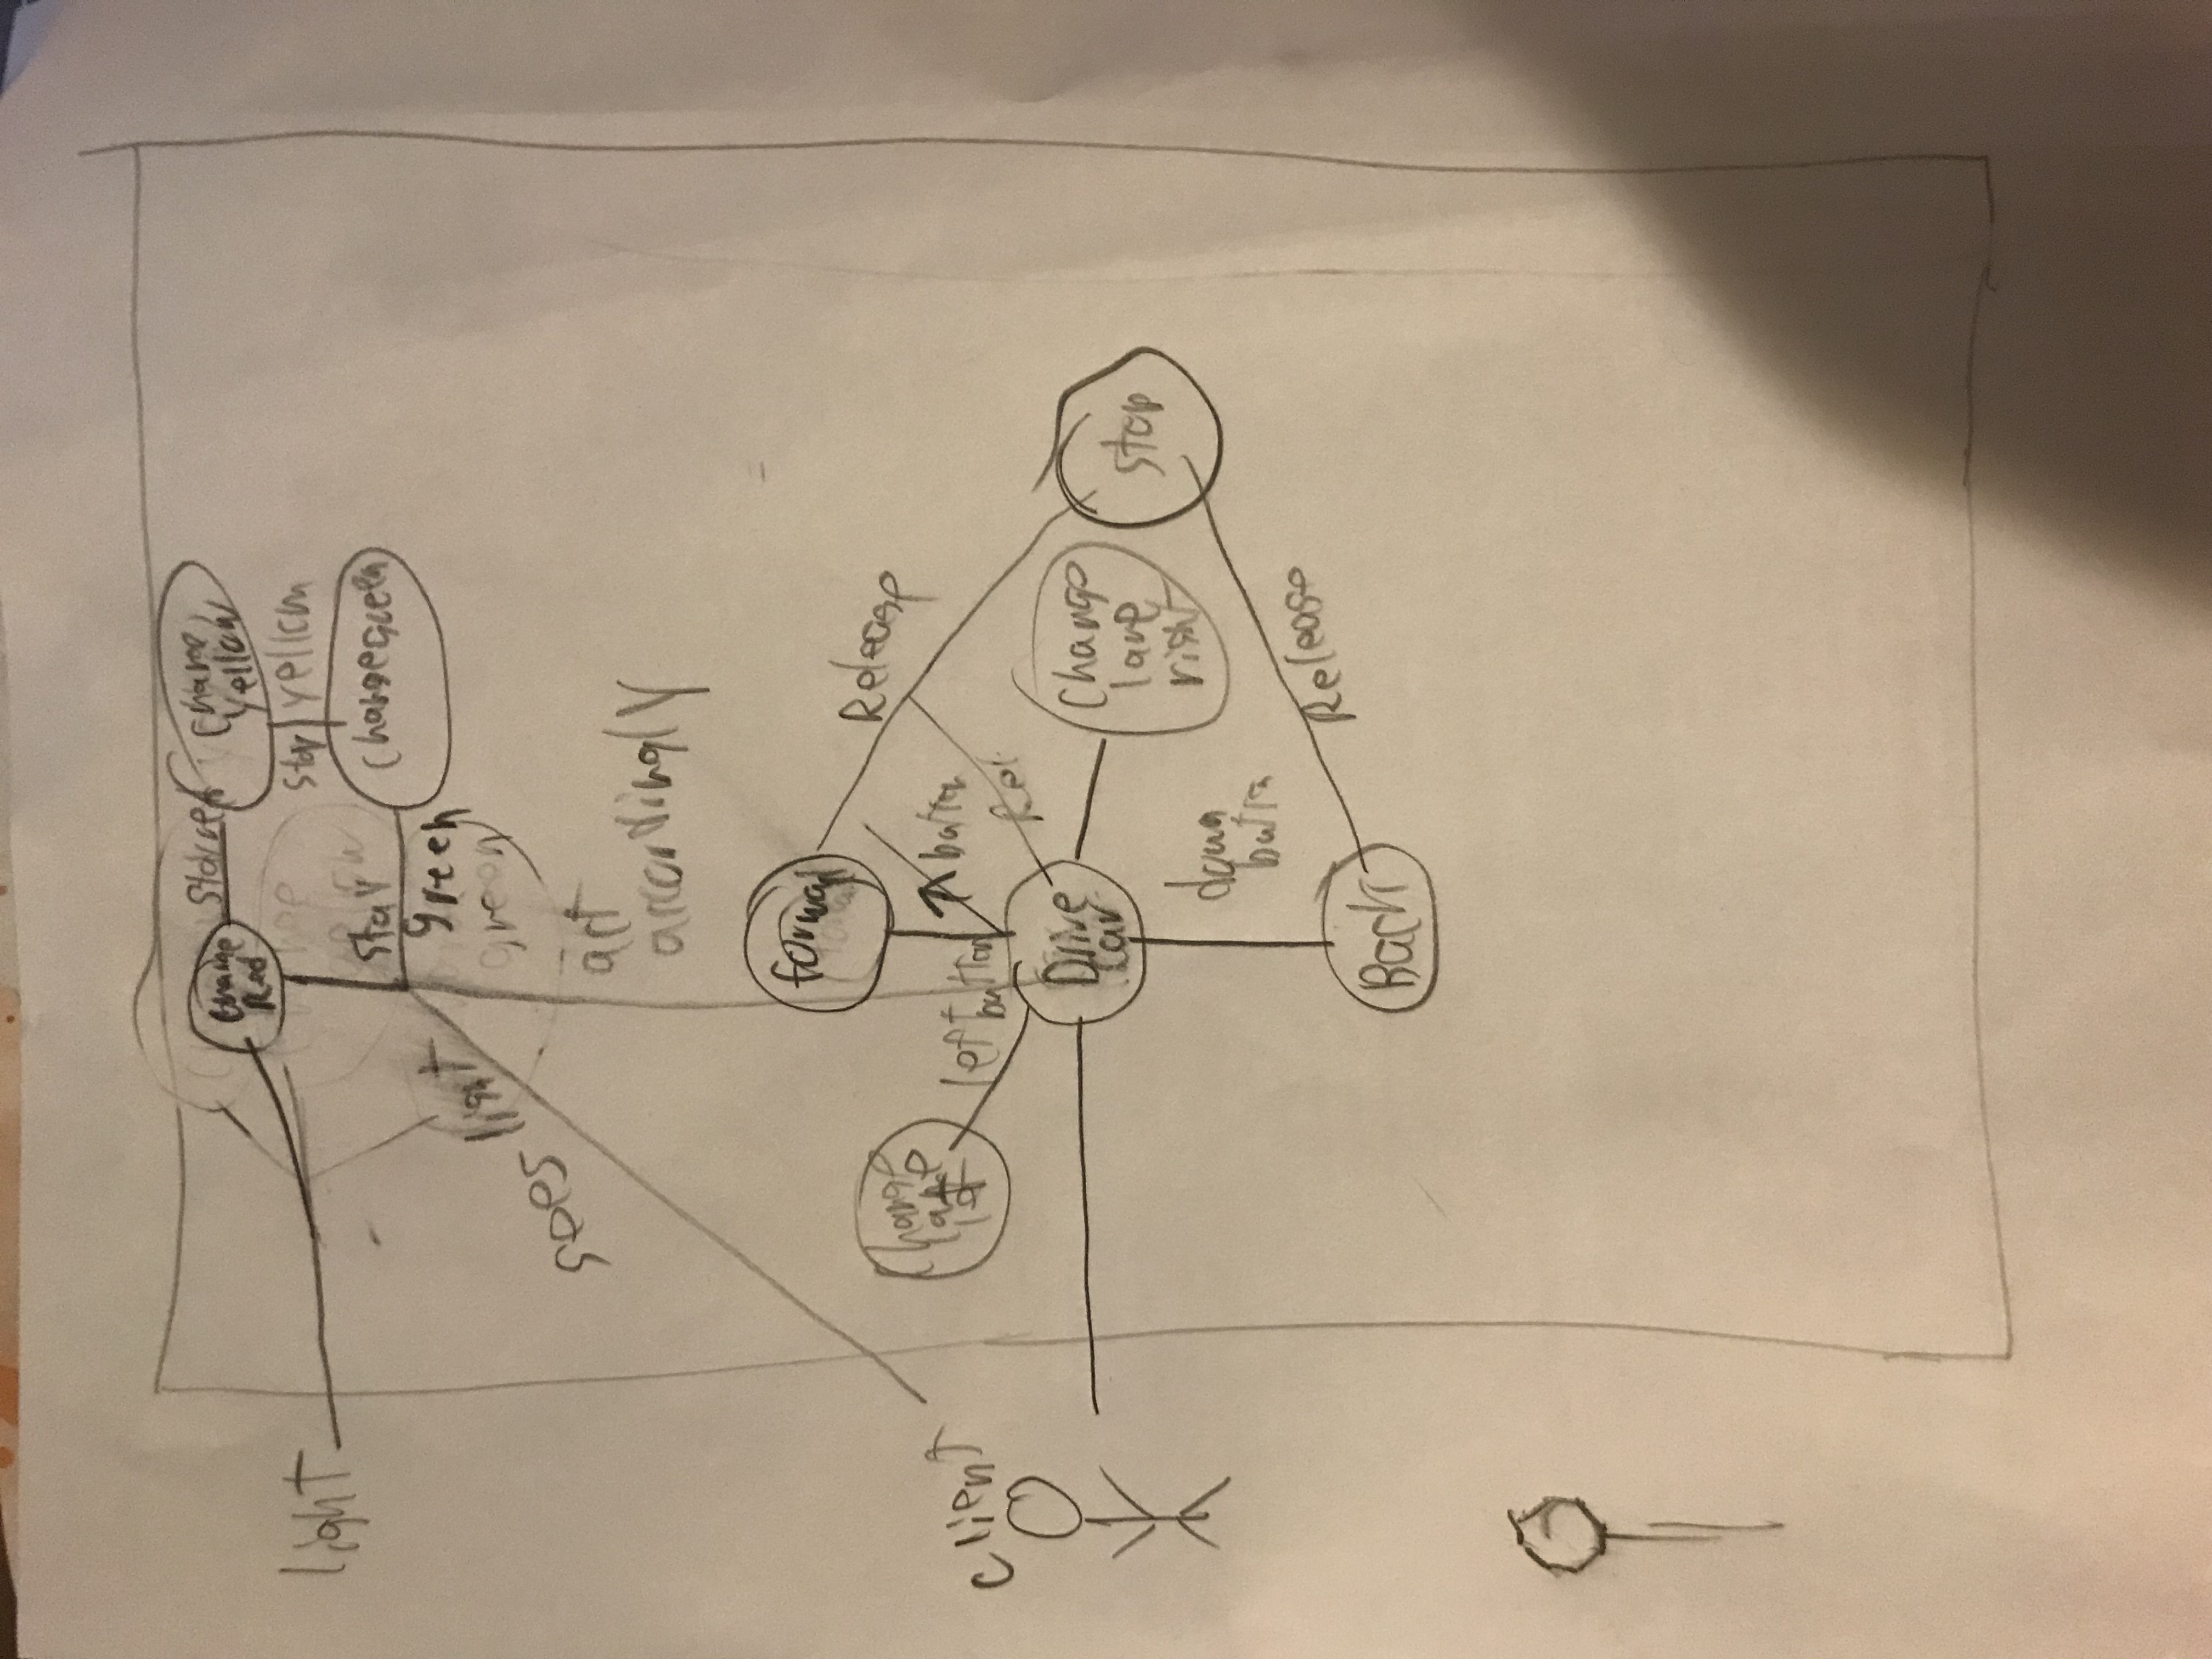 Change
Red
Stay red
Change
Yellow
light
Stay
yellow
Change green
Stay
green
green
sees light
act
accordingly
forward
Release
Change
lane
left button
button
Client
Rel
Drive
Car
Change
lane
right
Stop
down
button
Release
Back